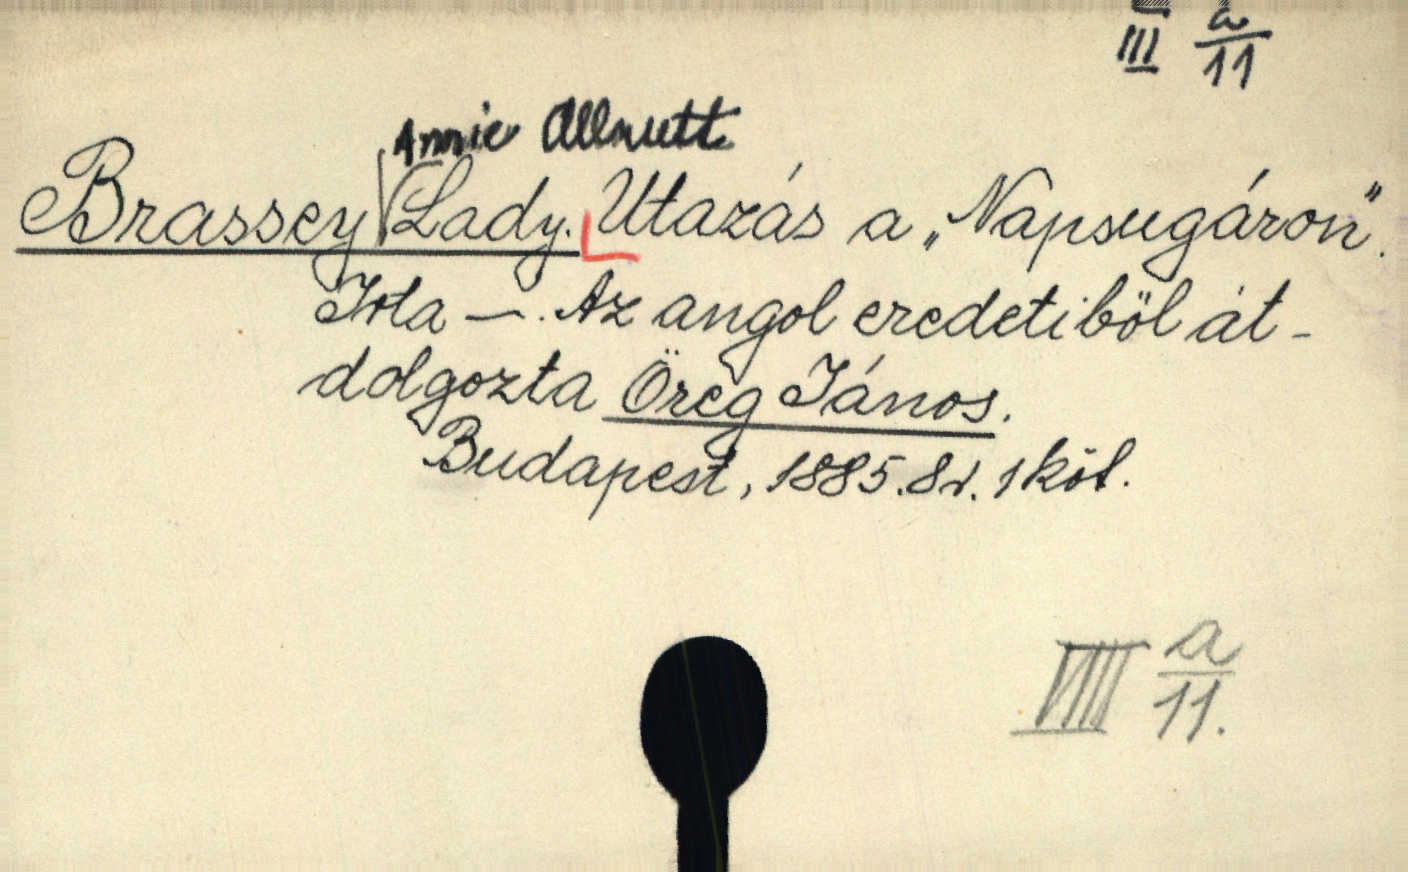 III a/11
Annie Allnutt
Brassey Lady. Utazás a „Napsugáron".
Irta —. Az angol eredetiből át-
dolgozta Öreg János.
Budapest, 1885. 8r. 1 köt.
a/11.